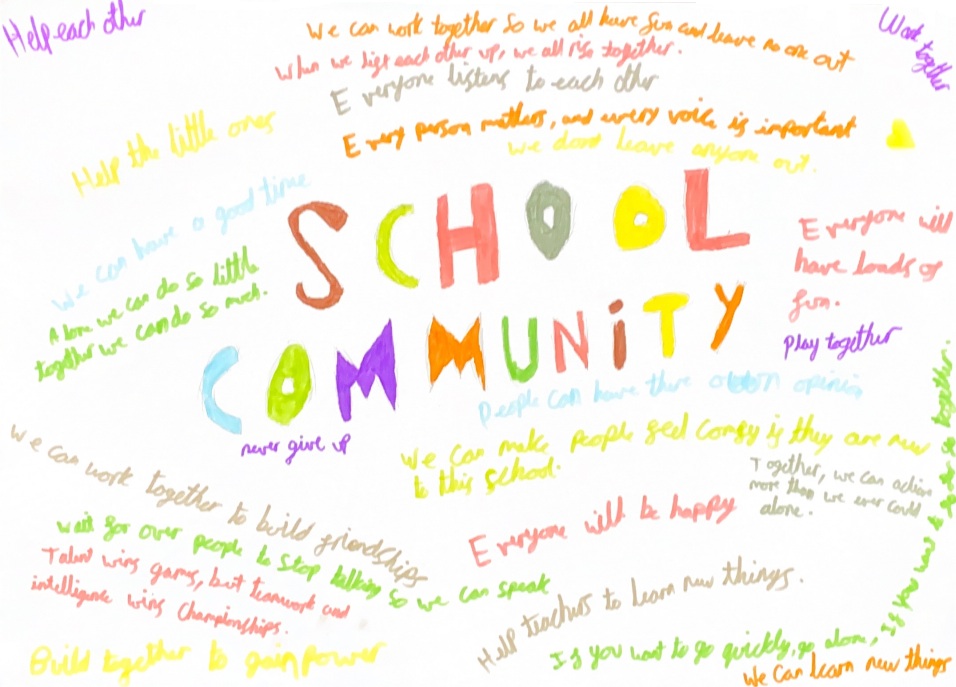 Help each other
We can work together so we all have fun and leave no one out
Work together
When we lift each other up, we all rise together.
Everyone listens to each other
Every person matters, and every voice is important
Help the little ones
We dont leave anyone out.
SCHOOL
We can have a good time
Everyone will
have loads of
fun.
Alone we can do so little
together we can do so much.
COMMUNITY
Play together
People can have there own opinion
never give up
We can make people feel comfy if they are new
to this school.
We can work together to build friendships
Together, we can
more than we ever could
alone.
Everyone will be happy
wait for over people to stop talking so we can speak
Talent wins games, but teamwork and
intelligence wins Championships.
Help teachers to learn new things.
Build together to gain power
If you want to go quickly, go alone, If you want to go far go together.
We can learn new things